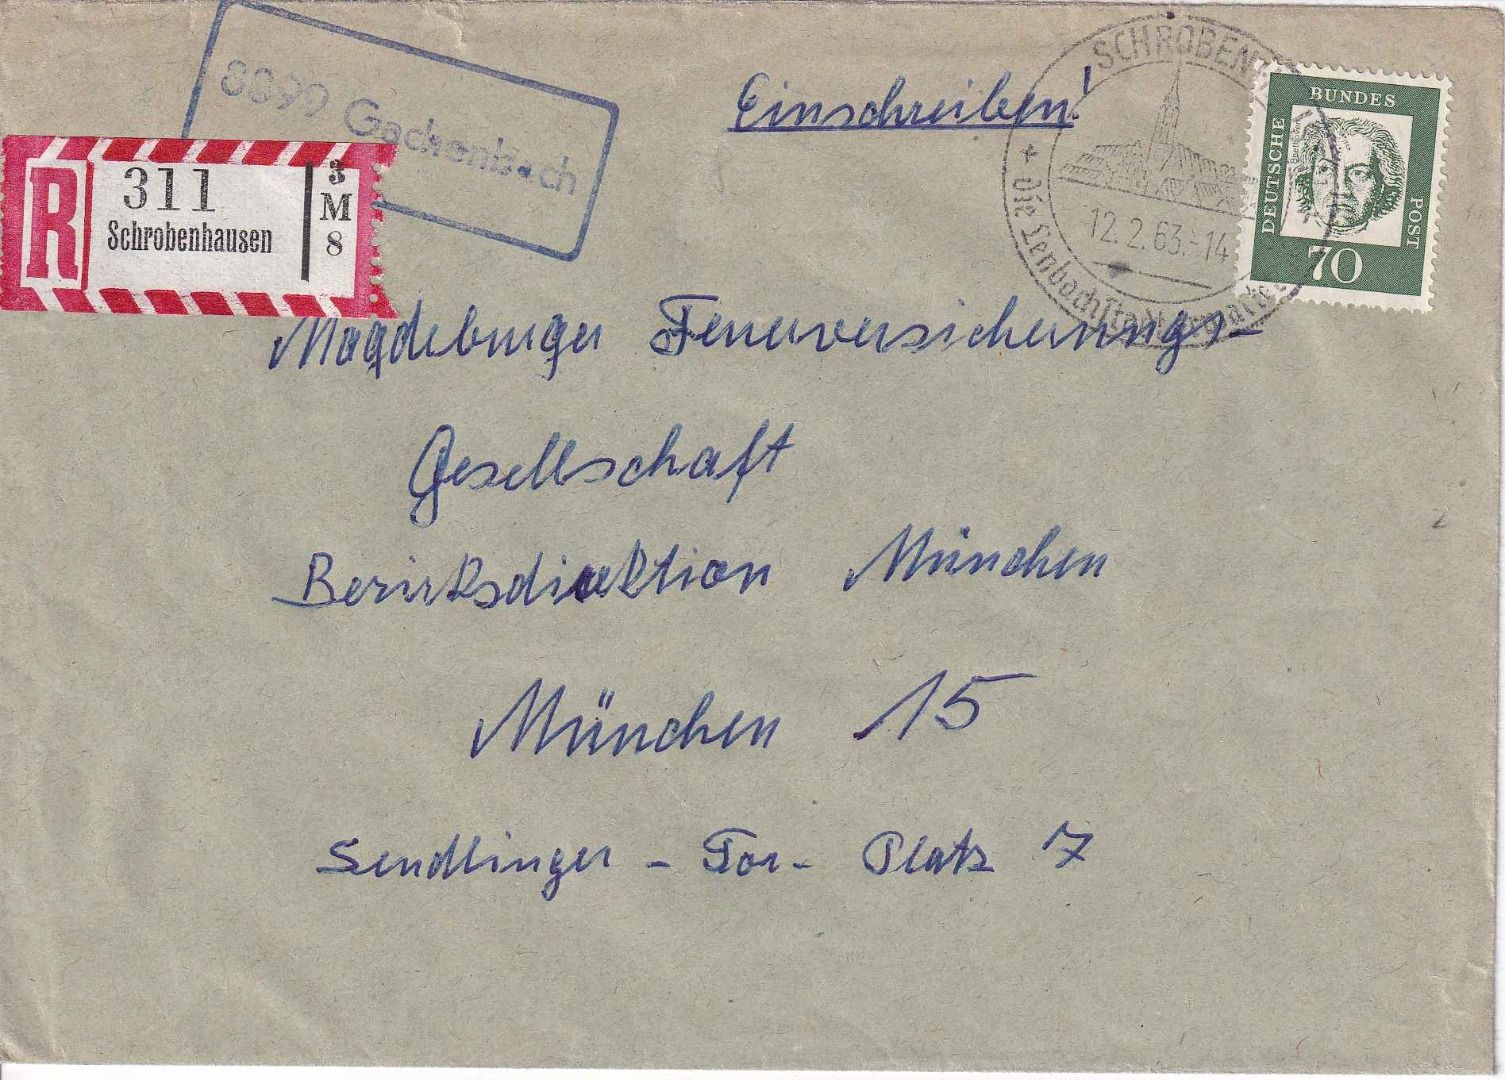 8899 Gachenbach
Einschreiben!
SCHROBENHAUSEN
12.2.63.-14
+ die Lenbachstadt
DEUTSCHE BUNDES POST
70
R
311
Schrobenhausen
3
M
8
Magdeburger Feuerversicherungs-
Gesellschaft
Bezirksdirektion München
München 15
Sendlinger - Tor - Platz 7